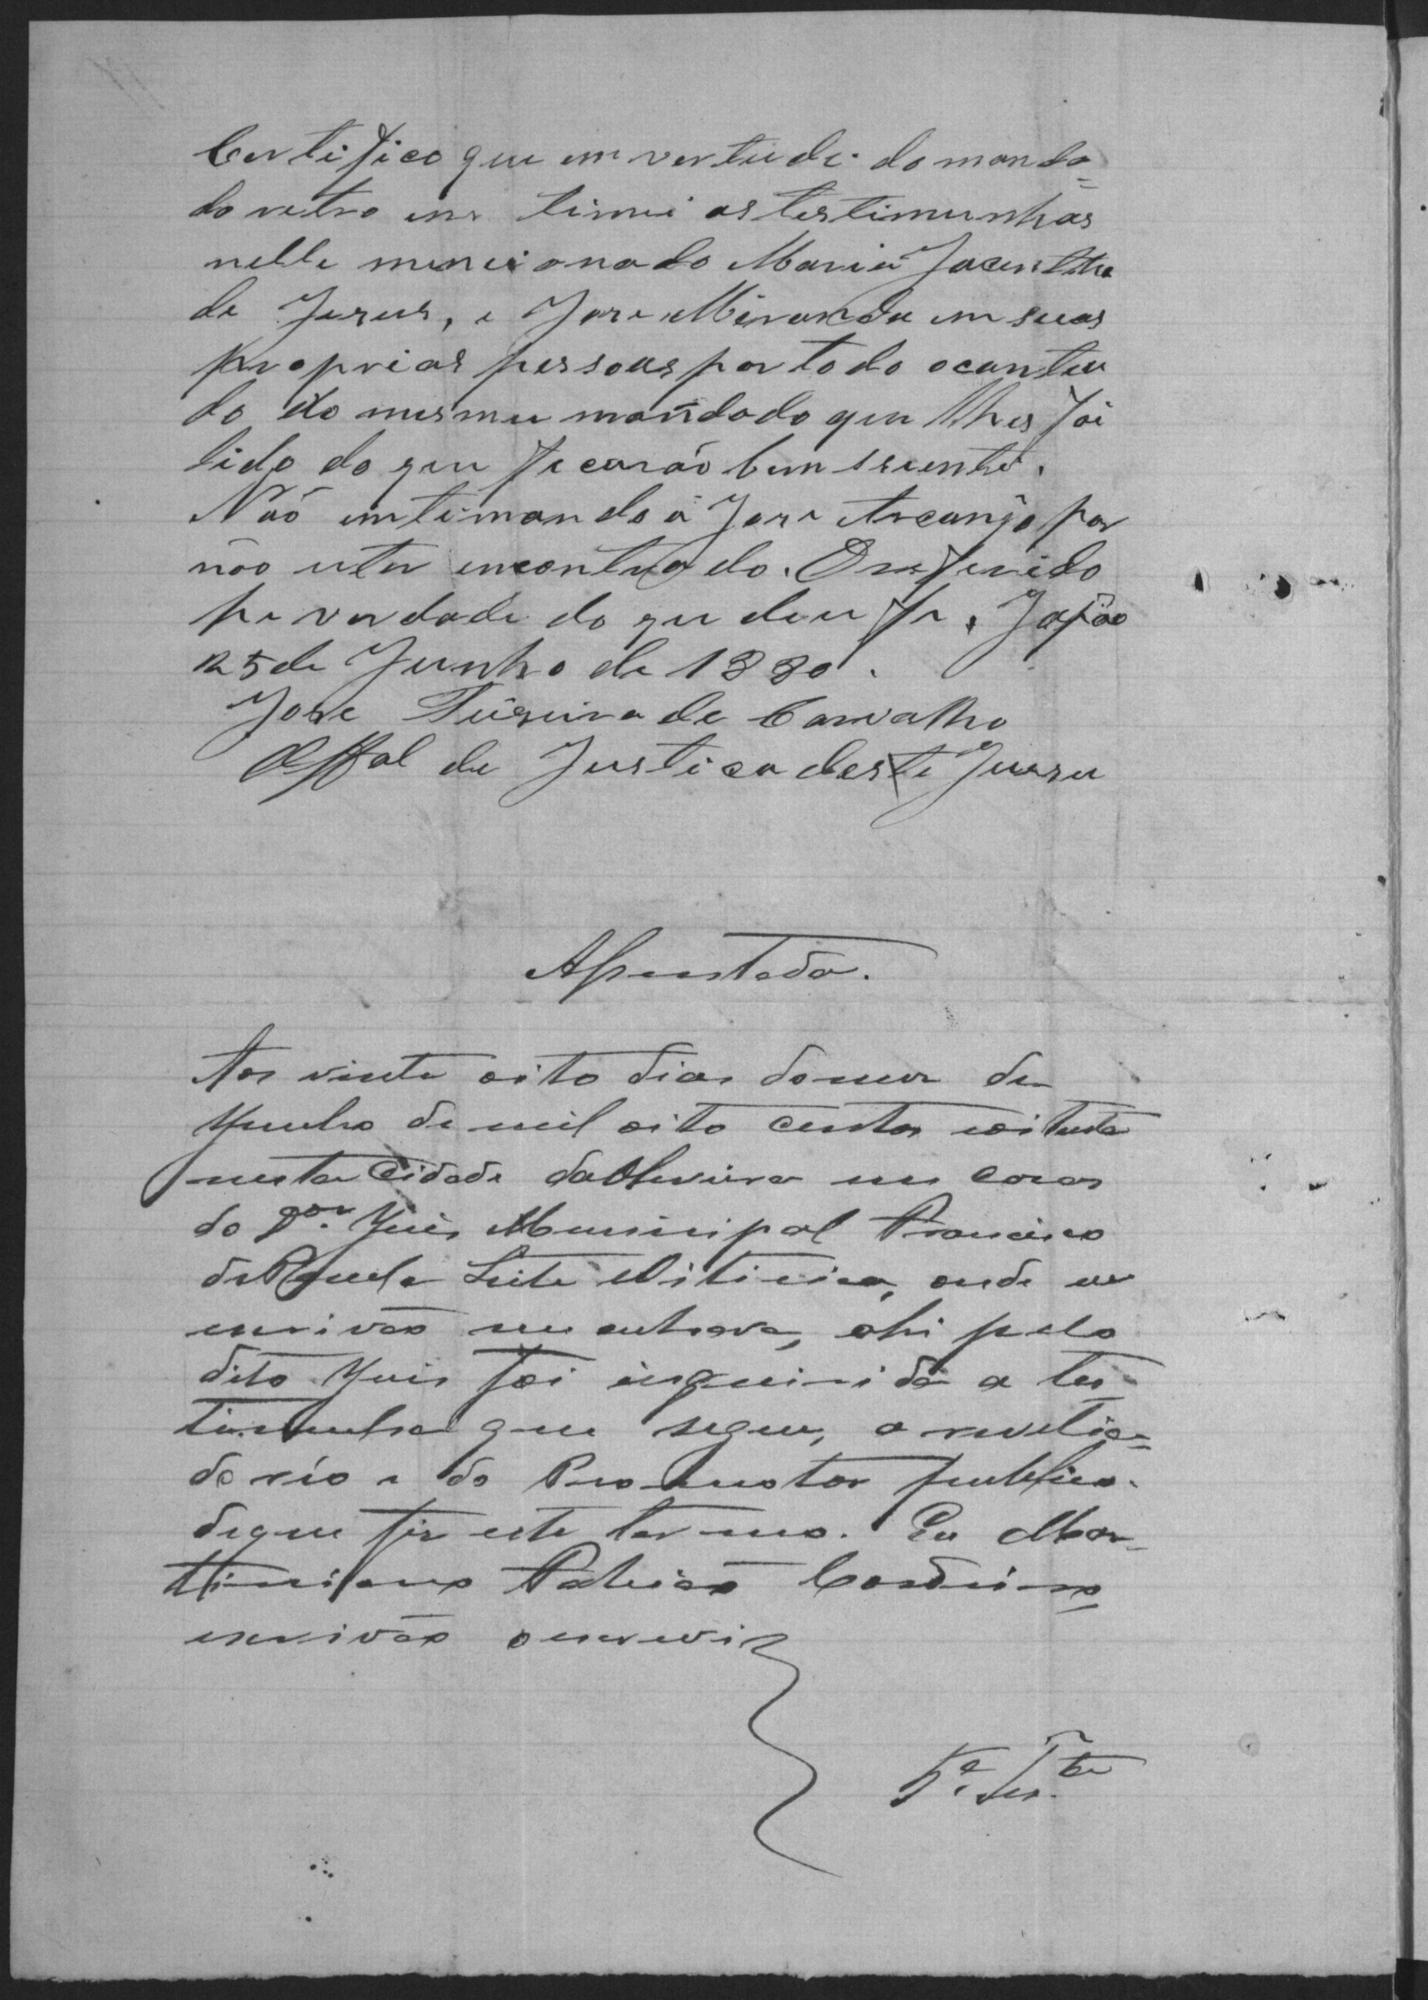 Certifico que em vertude do manda=
do retro in timei as testimunhas
nelle mencionado Maria Jacintha
de Jesus, e Jose Miranda em suas
proprias pessoas por todo o conteu
do do mesmu mandado que lhes foi
lido do que ficarão bem sciente.
Não intimando a Jose Arcanjo por
não ter encontrado. O referido
he verdade do que dou fé. Japão
25 de Junho de 1880.
Jose Teixeira de Carvalho
Offal de Justica deste Juizu
Assentada.
Aos vinte oito dias do mes de
Junho de mil oito centos e oitenta
nesta Cidade da Oliveira em casas
do Dor. Juis Municipal Francisco
de Paula Leite Oiticica, onde eu
escrivão me achava, ahi pelo
dito Juis foi inquirida a tes-
timunha que segue, a revelia=
do réo e do Promotor publico.
de que fiz este termo. Eu Mar-
timiano Patricio Cordeiro
escrivão o escrevi